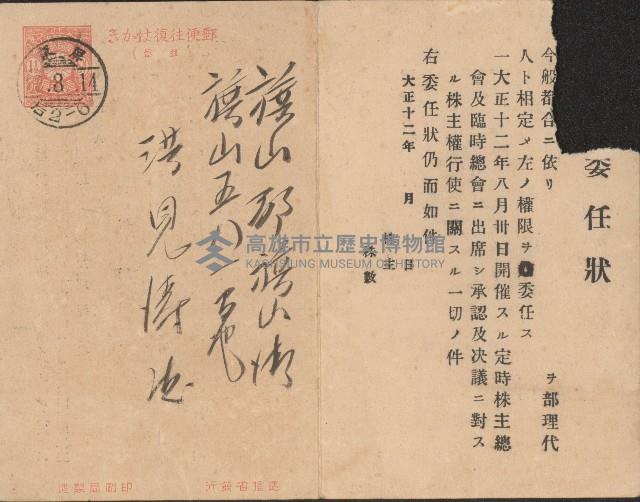 委任狀
今般都合ニ依リ
ヲ部理代
人ト相定メ左ノ權限ヲ委任ス
一大正十二年八月卅日開催スル定時株主總
會及臨時總會ニ出席シ承認及決議ニ對ス
ル株主權行使ニ關スル一切ノ件
右委任狀仍而如件
大正十二年 月 日
株主
株數
郵便往復はかき
旗山郡旗山街
旗山五〇一番地
洪見
遞信省發行
印刷局製造
高雄市立歷史博物館
KAOHSIUNG MUSEUM OF HISTORY